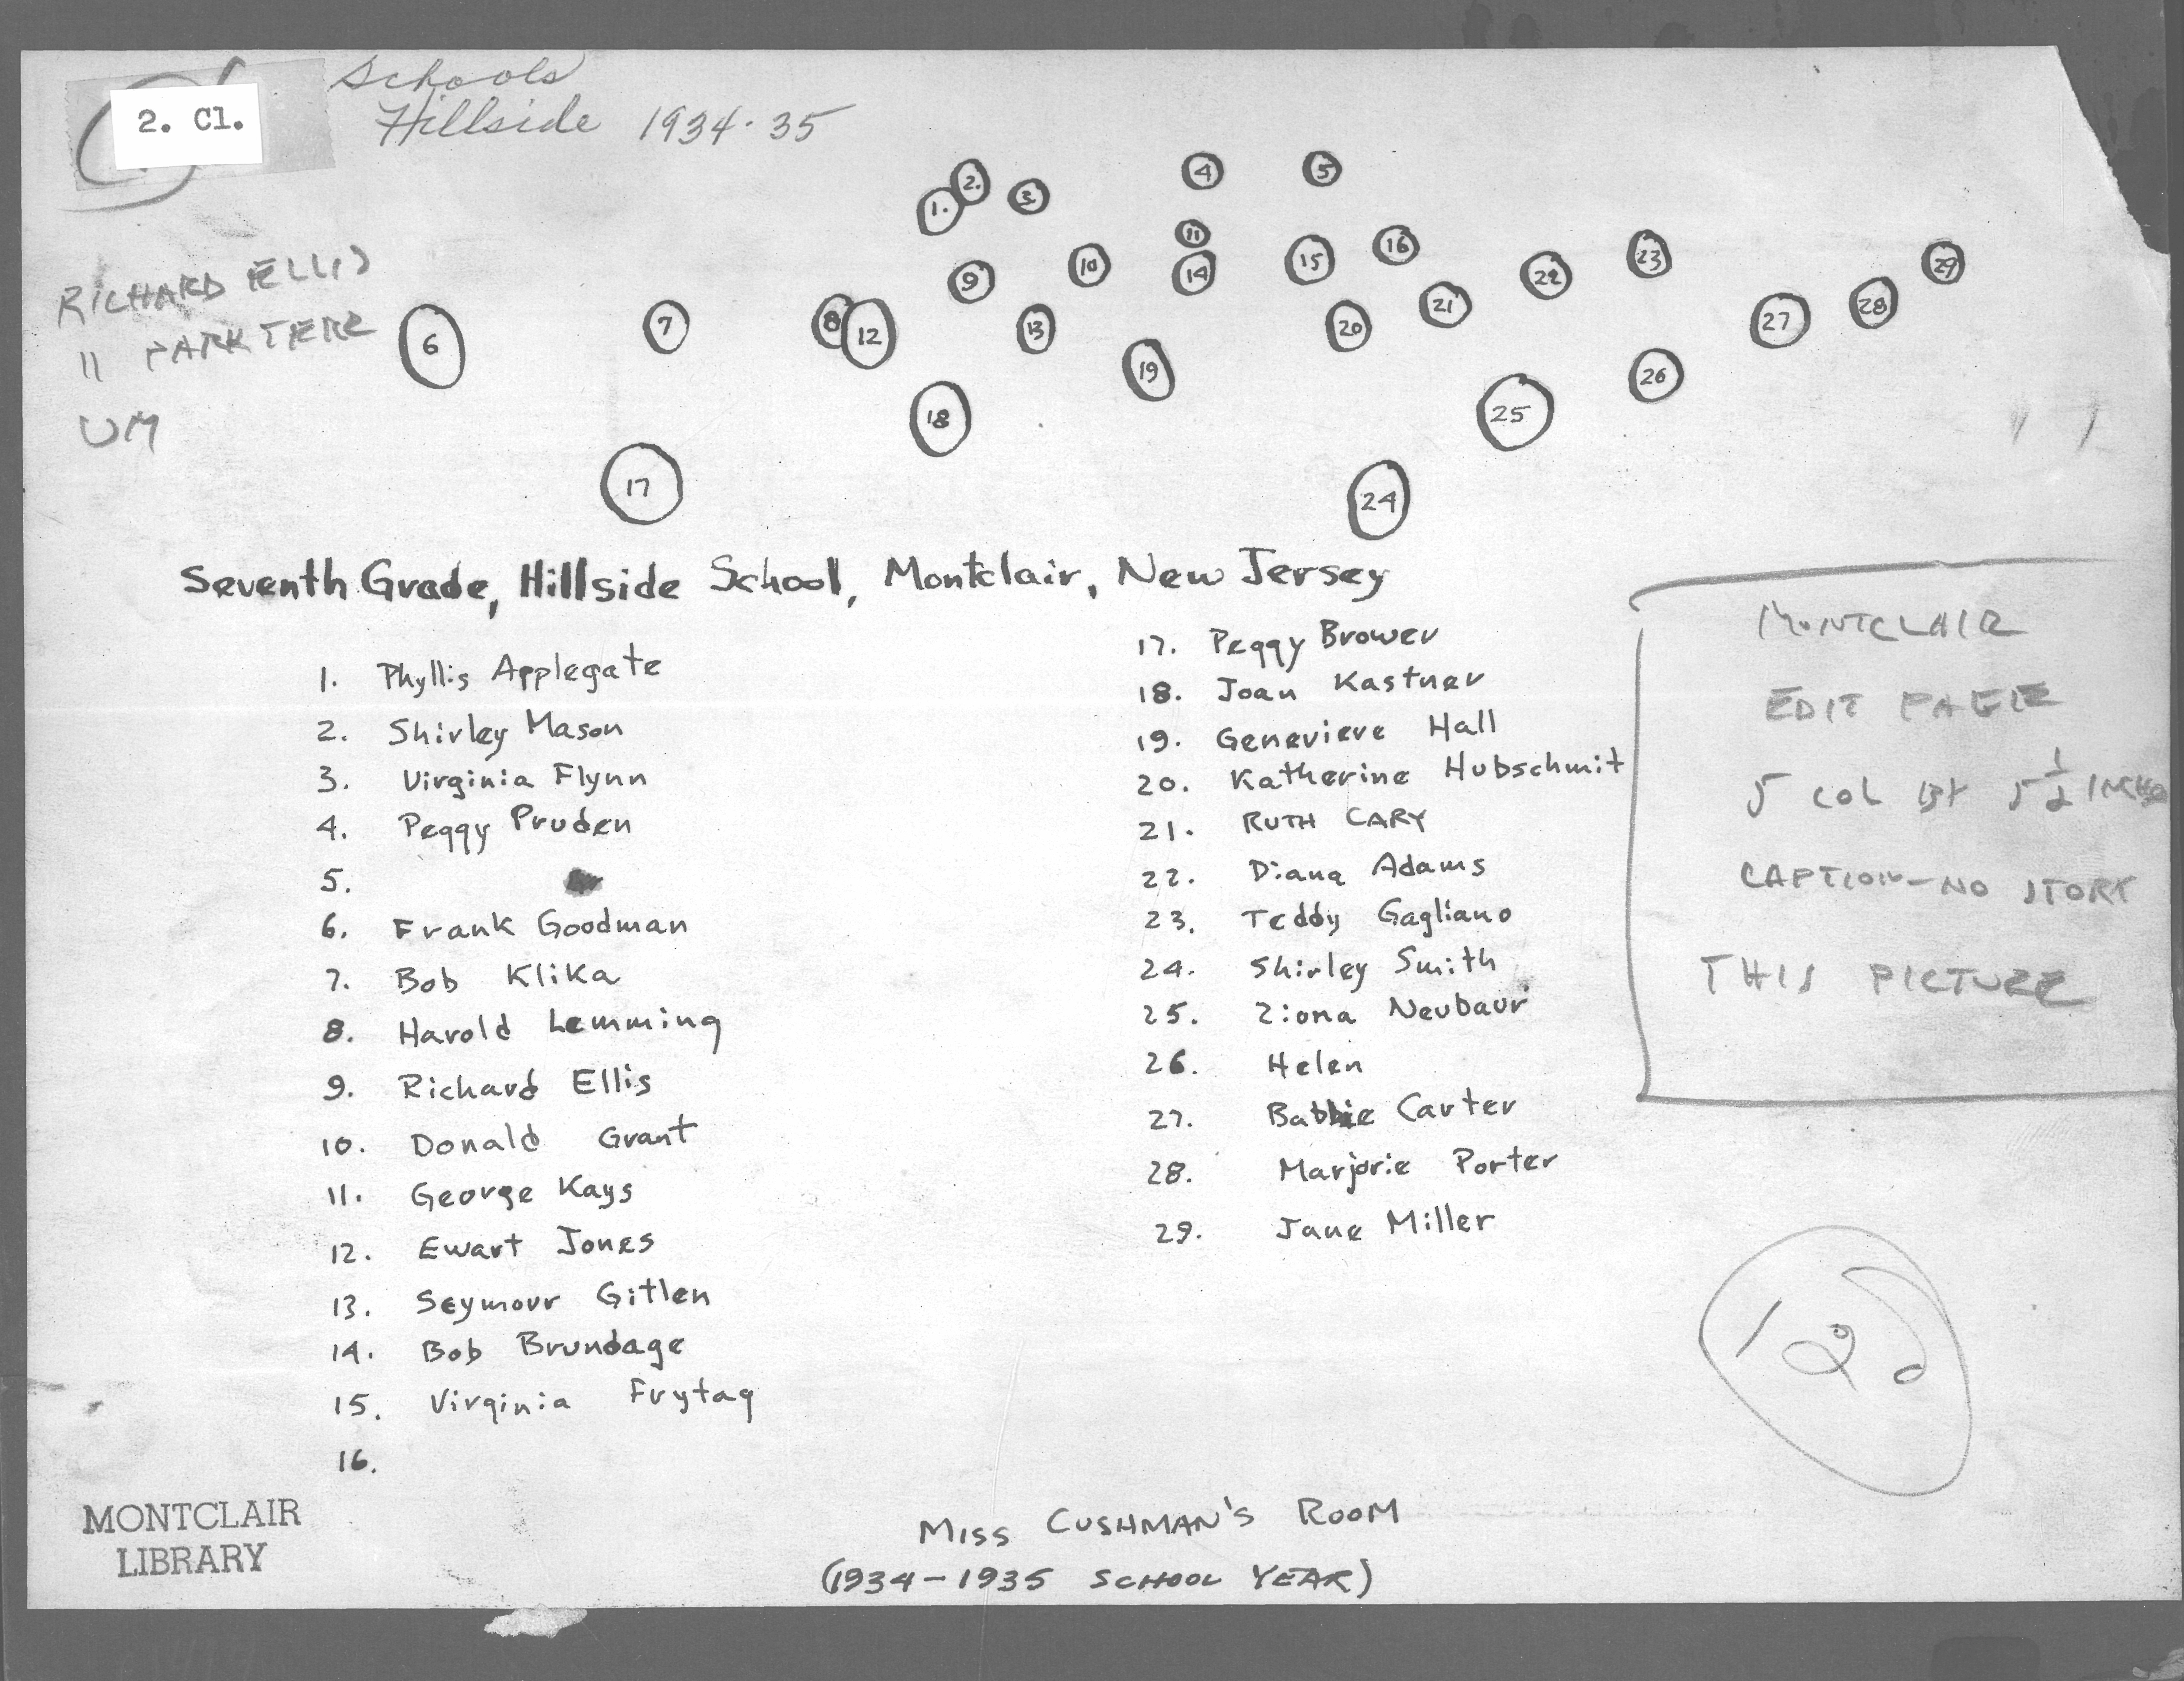 Schools
2. Cl.
Hillside 1934-35
4 5
2. 3.
1.
11
10 14 15 16 22 23 29
9
6 7 8 12 13 20 21 27 28
19 26
18 25
17 24
RICHARD ELLIS
11 PARK TERR
UM
Seventh Grade, Hillside School, Montclair, New Jersey
1. Phyllis Applegate
2. Shirley Mason
3. Virginia Flynn
4. Peggy Pruden
5.
6. Frank Goodman
7. Bob Klika
8. Harold Lemming
9. Richard Ellis
10. Donald Grant
11. George Kays
12. Ewart Jones
13. Seymour Gitlen
14. Bob Brundage
15. Virginia Frytag
16.
17. Peggy Brower
18. Joan Kastner
19. Genevieve Hall
20. Katherine Hubschmit
21. RUTH CARY
22. Diana Adams
23. Teddy Gagliano
24. Shirley Smith
25. Ziona Neubaur
26. Helen
27. Babbie Carter
28. Marjorie Porter
29. Jane Miller
MONTCLAIR
EDIT PAGE
5 COL BY 5 1/2 INCHES
CAPTION-NO STORY
THIS PICTURE
MISS CUSHMAN'S ROOM
(1934-1935 SCHOOL YEAR)
MONTCLAIR
LIBRARY